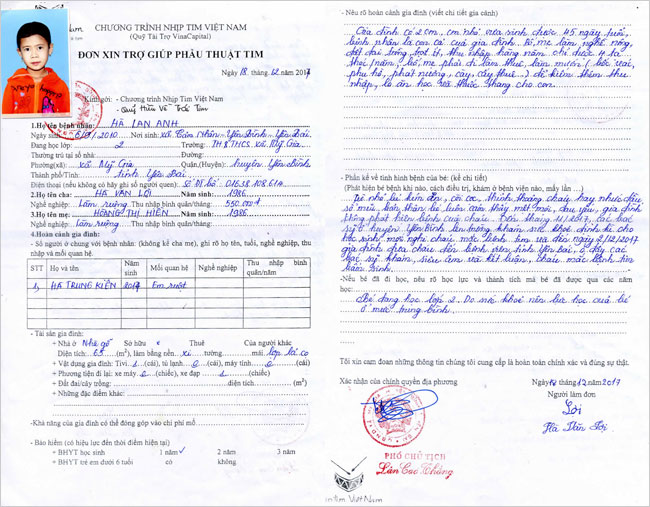 CHƯƠNG TRÌNH NHỊP TIM VIỆT NAM
(Quỹ Tài Trợ VinaCapital)
ĐƠN XIN TRỢ GIÚP PHẪU THUẬT TIM
Ngày 18 tháng 12 năm 2017
Kính gởi: - Chương trình Nhịp Tim Việt Nam
- Quỹ Hiểu Về Trái Tim
1.Họ tên bệnh nhân: HÀ LAN ANH
Ngày sinh: /2010 Nơi sinh: xã Cảm Nhân - Yên Bình - Yên Bái
Đang học lớp: 2 Trường: TH & THCS xã Mỹ Gia
Trường trú tại số nhà: Đường:
Phường(xã): xã Mỹ Gia Quận,(Huyện): huyện Yên Bình
Thành phố/Tỉnh: tỉnh Yên Bái
Điện thoại (nếu không có hãy ghi số người quen): số ĐT bố: 01638 108 614
2.Họ tên cha: HÀ VĂN LỢI Năm sinh: 1986
Nghề nghiệp: Làm ruộng Thu nhập bình quân/tháng: 550.000đ
3.Họ tên mẹ: HOÀNG THỊ HIÊN Năm sinh: 1986
Nghề nghiệp: Làm ruộng Thu nhập bình quân/tháng:
4.Hoàn cảnh gia đình:
- Số người ở chung với bệnh nhân: (không kể cha mẹ), ghi rõ họ tên, tuổi, nghề nghiệp, thu nhập và mối quan hệ.
STT Họ và tên Năm sinh Mối quan hệ Nghề nghiệp Thu nhập bình quân/năm
1, HÀ TRUNG KIÊN 2017 Em ruột
- Tài sản gia đình:
+ Nhà ở Nhà gỗ Sở hữu x Thuê Của người khác
Diện tích: 65 (m²), làm bằng nền: xi tường mái lợp lá cọ
+ Vật dụng gia đình: Tivi 1 (cái), tủ lạnh 0 (cái), máy tính 0 (cái)
+ Phương tiện đi lại: xe máy 1 (chiếc), xe đạp 1 (chiếc)
+ Đất đai/cây trồng: diện tích (m²)
+ Những đặc điểm khác:
-Khả năng của gia đình có thể đóng góp vào chi phí mổ
- Bảo hiểm (có hiệu lực đến thời điểm hiện tại)
+ BHYT học sinh 1 năm ✓ 2 năm 3 năm
+ BHYT trẻ em dưới 6 tuổi có không
- Nêu rõ hoàn cảnh gia đình (viết chi tiết gia cảnh)
Gia đình có 2 con, em nhỏ vừa sinh được 45 ngày tuổi,
bệnh nhân là con cả của gia đình. Bố, mẹ làm nghề nông,
đất đai trồng trọt ít, thu nhập hàng năm chỉ được 4 tạ
thóc/năm, bố, mẹ phải đi làm thuê, làm mướn (bốc vác,
phụ hồ, phát nương, cày, cấy thuê...) để kiếm thêm thu
nhập, lo ăn học và thuốc thang cho con.
- Phần kể về tình hình bệnh của bé: (kể chi tiết)
(Phát hiện bé bệnh khi nào, cách điều trị, khám ở bệnh viện nào, mấy lần ...)
Từ nhỏ lúc biếng ăn, còi cọc, thỉnh thoảng cháu hay nhức đầu
sổ mũi, bản thân bé luôn cảm thấy mệt mỏi, đau yếu, gia đình
không phát hiện bệnh của cháu. Đến tháng 11/2017, các bác
sỹ ở huyện Yên Bình lên trường khám sức khoẻ định kì cho
học sinh mới nghi cháu mắc bệnh tim và đến ngày 2/12/2017
gia đình đưa cháu đến bệnh viện tỉnh Yên Bái, ở đây các
bác sỹ khám, siêu âm và kết luận, cháu mắc bệnh tim
bẩm sinh.
- Nếu bé đã đi học, nêu rõ học lực và thành tích mà bé đã được qua các năm học:
Bé đang học lớp 2. Do sức khoẻ nên lực học của bé
ở mức trung bình.
Tôi xin cam đoan những thông tin chúng tôi cung cấp là hoàn toàn chính xác và đúng sự thật.
Xác nhận của chính quyền địa phương Ngày 18/12/năm 2017
Người làm đơn
Lợi
Hà Văn Lợi
PHÓ CHỦ TỊCH